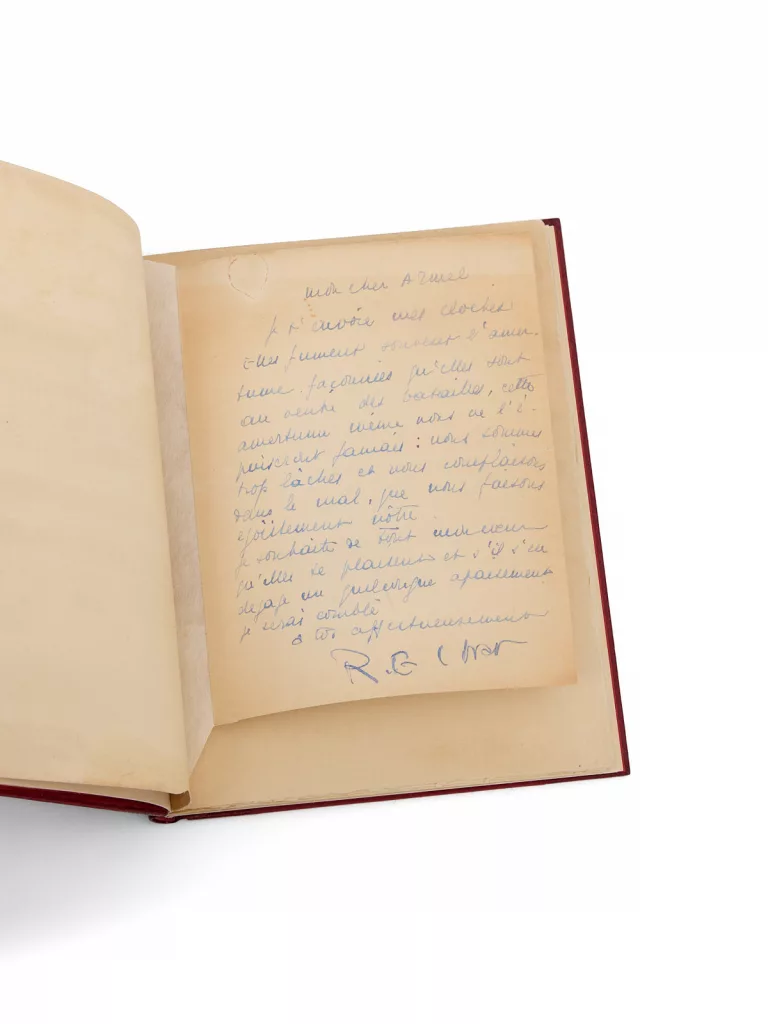 mon cher Armel
Je t'envoie mes cloches
Elles fument souvent d'amer-
tume. façonnées qu'elles sont
au ventre des batailles, cette
amertume même nous ne l'é-
puiserons jamais : nous sommes
trop lâches et nous complaisons
dans le mal, que nous faisons
égoïstement nôtre.
Je souhaite de tout mon cœur
qu'elles te plaisent et s'il s'en
dégage un quelconque apaisement
je serai comblé
à toi affectueusement
R.G C